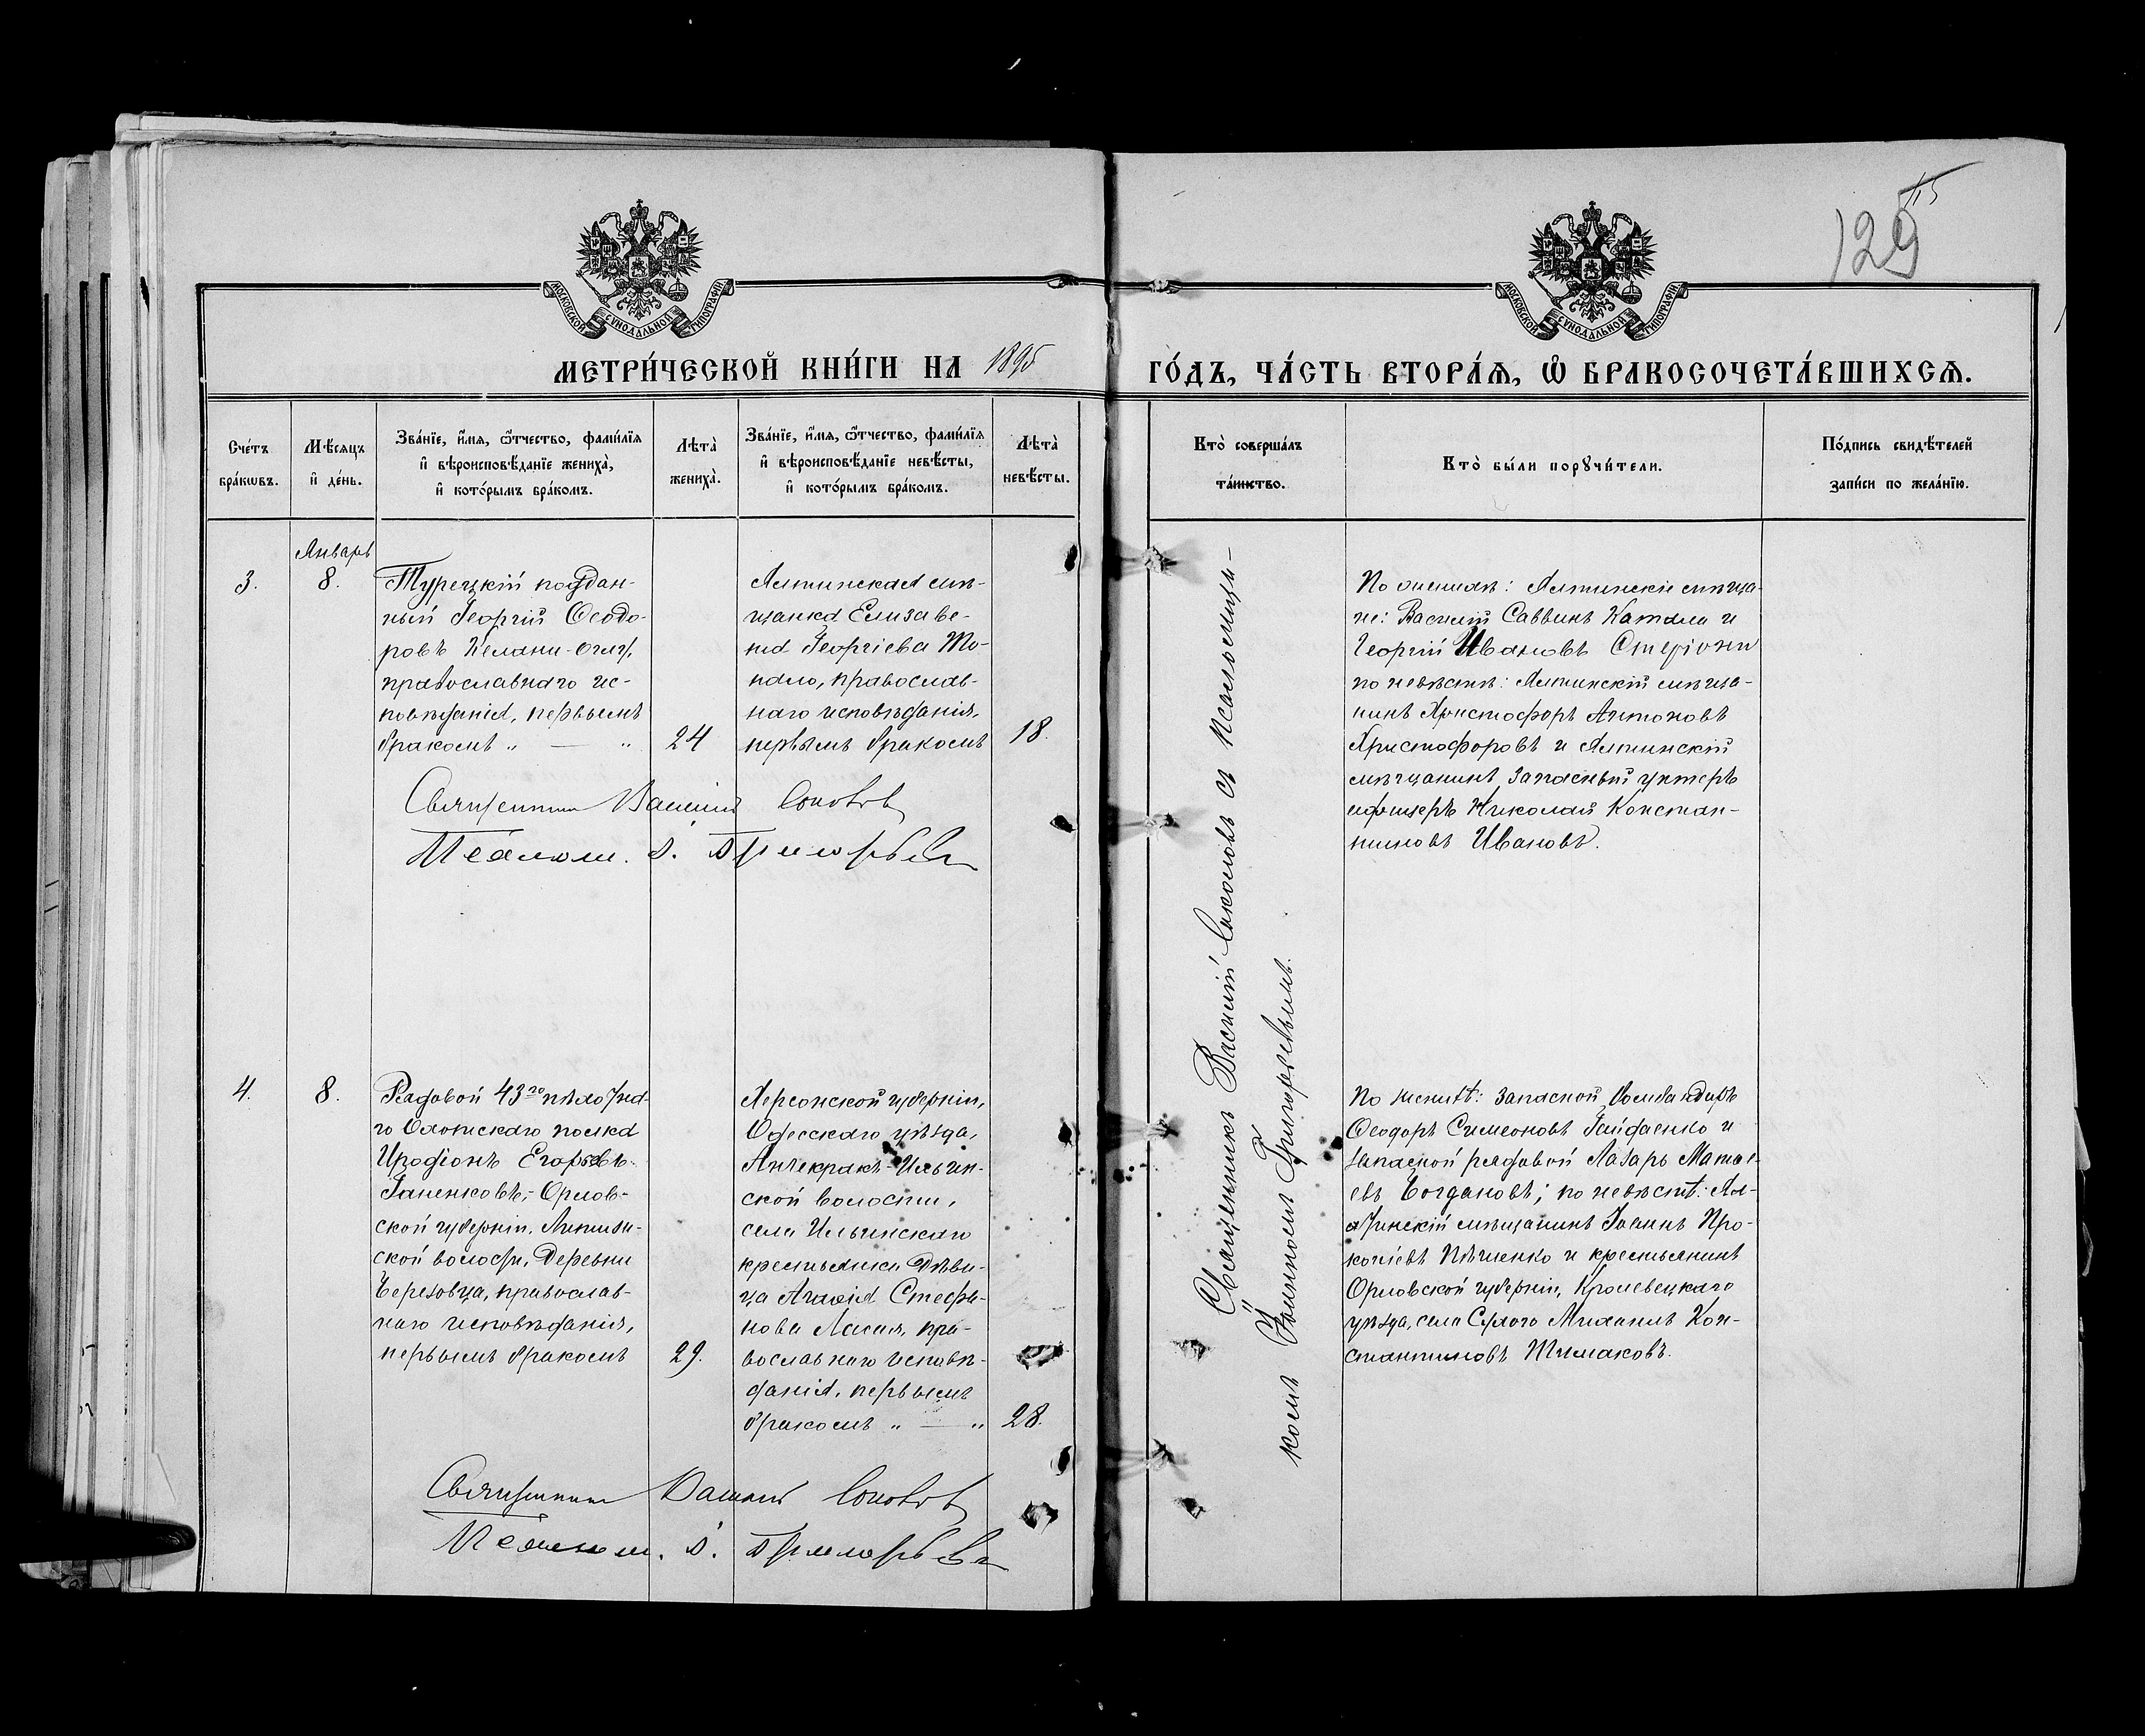 129
МОСКОВСКОЙ СѴНОДАЛЬНОЙ ТИПОГРАФІИ
МОСКОВСКОЙ СѴНОДАЛЬНОЙ ТИПОГРАФІИ
МЕТРИ́ЧЕСКОЙ КНИ́ГИ НА 1895 ГО́ДЪ, ЧА́СТЬ ВТОРА́Ѧ, Ѽ БРАКОСОЧЕТА́ВШИХСѦ.
Сче́тъ
бра́кѡвъ.
Мѣ́сѧцъ
и҆ де́нь.
Зва́нїе, и҆́мѧ, ѻ҆́тчество, фамѝлїѧ
и҆ вѣроисповѣ́данїе жениха̀,
и҆ кото́рымъ бра́комъ.
Лѣта̀
жениха̀.
Зва́нїе, и҆́мѧ, ѻ҆́тчество, фамѝлїѧ
и҆ вѣроисповѣ́данїе невѣ́сты,
и҆ кото́рымъ бра́комъ.
Лѣта̀
невѣ́сты.
Кто̀ соверша́лъ
та́инство.
Кто̀ бы́ли порꙋчи́тели.
По́дпись свидѣ́телей
за́писи по жела́нїю.
3.
Январь
8.
Турецкій поддан-
ный Георгій Ѳеодо-
ровъ Келани-оглу,
православнаго ис-
повѣданія, первымъ
бракомъ „ — „
24
Ялтинская мѣ-
щанка Елизаве-
та Георгіева
православ-
наго исповѣданія,
первымъ бракомъ
18.
Священникъ Василій Соколовъ съ псаломщи-
комъ Іоанномъ Григорьевымъ.
По женихѣ: Ялтинскіе мѣща-
не: Василій Саввинъ и
Георгій Ивановъ
по невѣстѣ: Ялтинскій мѣща-
нинъ Христофоръ Антоновъ
Христофоровъ и Ялтинскій
мѣщанинъ запасный унтеръ
офицеръ Николай Констан-
тиновъ Ивановъ.
Священникъ Василій Соколовъ
Псаломщ. І. Григорьевъ
4.
8.
Рядовой 43го пѣхотна-
го Охотскаго полка
Иродіонъ Егоровъ
Орлов-
ской губерніи,
ской волости, деревни
Березовца, православ-
наго исповѣданія,
первымъ бракомъ
29.
Херсонской губерніи,
Одесскаго уѣзда,
Анчекракъ-Ильин-
ской волости,
села Ильинскаго
крестьянка дѣви-
ца Агафія Стефа-
нова пра-
вославнаго исповѣ-
данія, первымъ
бракомъ „ — „
28.
По женихѣ: запасной бомбардиръ
Ѳеодоръ Симеоновъ Гайдаенко и
запасной рядовой Лазарь Матѳе-
евъ Богдановъ; по невѣстѣ: Ял-
тинскій мѣщанинъ Іоаннъ Про-
копіевъ и крестьянинъ
Орловской губерніи, Кролевецкаго
уѣзда, села Михаилъ Кон-
стантиновъ Шумаковъ.
Священникъ Василій Соколовъ
Псаломщ. І. Григорьевъ